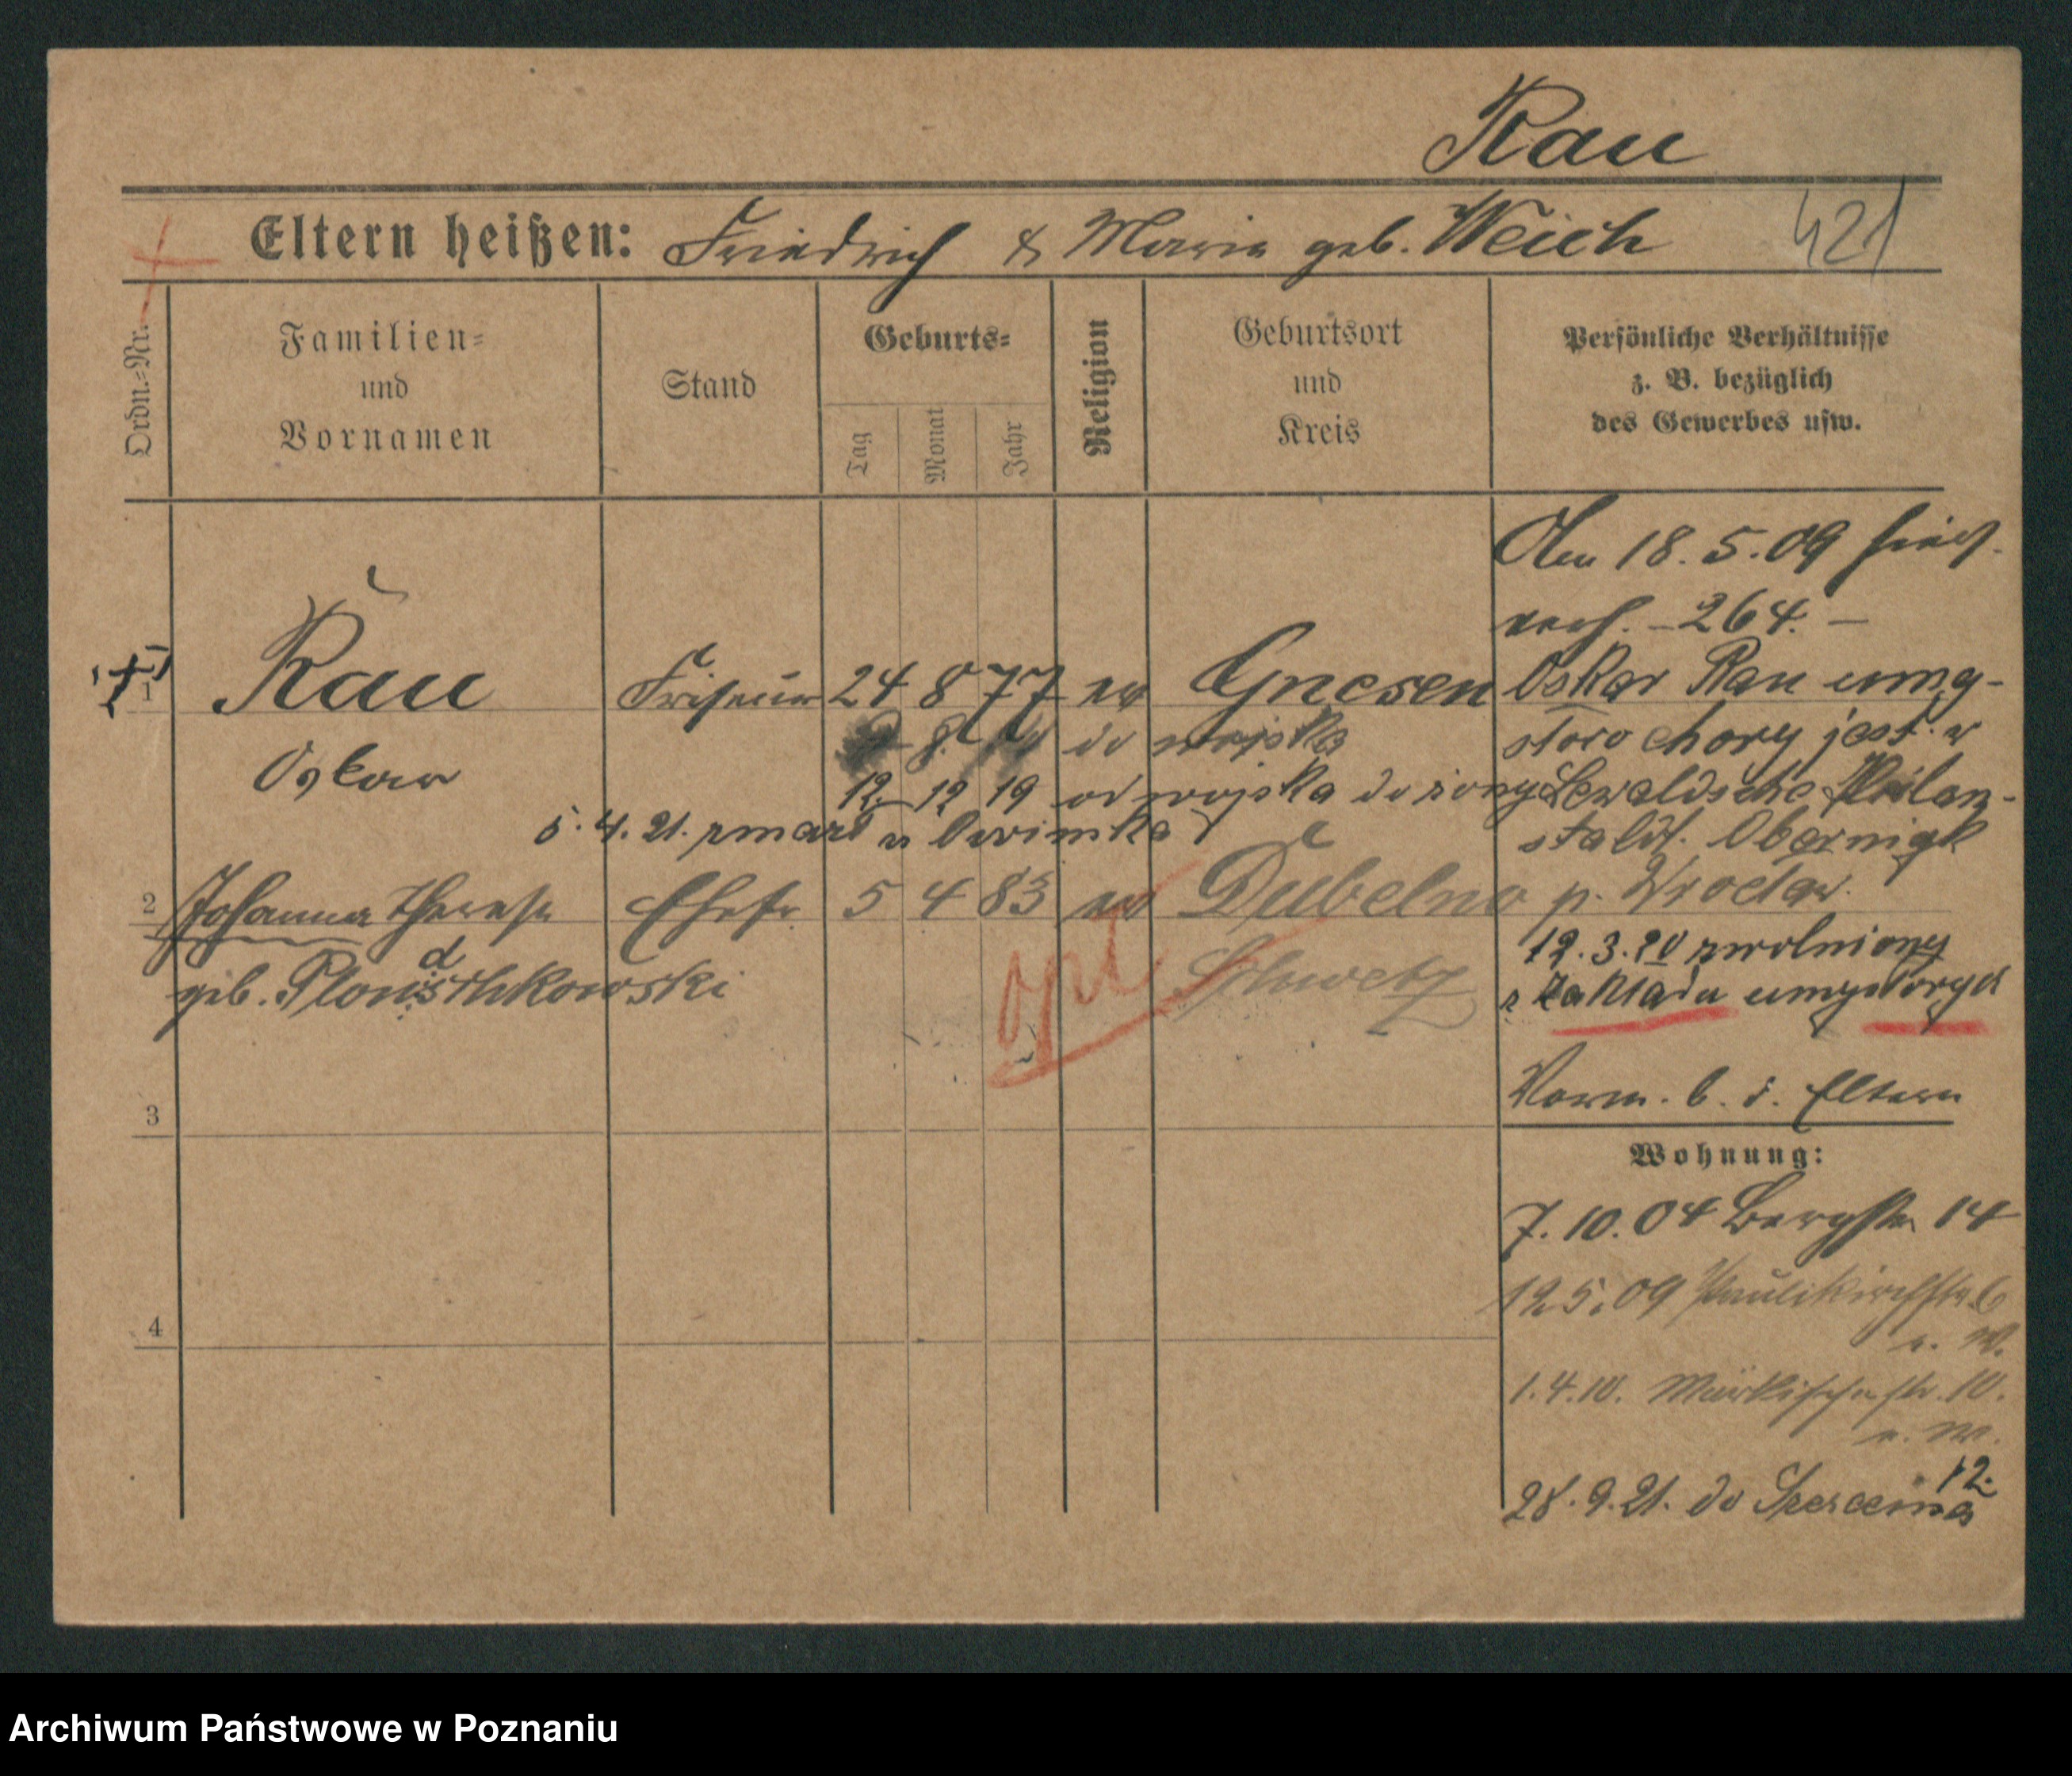 Rau
Eltern heißen: Friedrich & Maria geb. Weich 421
Ordn.-Nr.
Familien-
und
Vornamen
Stand
Geburts-
Tag
Monat
Jahr
Religion
Geburtsort
und
Kreis
Persönliche Verhältnisse
z. B. bezüglich
des Gewerbes usw.
18.5.09
264.
1 Rau Friseur 24 8 77 ev Gnesen
Oskar Rau umy-
słowo chory jest w
8. do wojska
Oskar
12. 12 19 od wojska do żony
Lewaldsche Heilan-
staldt. Obernigk
5.4.21. zmarł w
p. Wrocław.
2 Johanna Therese Ehefr 5 4 83 ev Dubelno
geb.
d
opt
Schwetz
12.3.20 zwolniony
z Zakładu umysłowych
Vorm. b. d. Eltern
3
Wohnung:
7.10.04 Bergstr 14
12.5.09 Paulikirchstr. 6
n. W.
4
1.4.10. Märkischestr. 10.
n. W.
12.
28.9.21. do
Archiwum Państwowe w Poznaniu